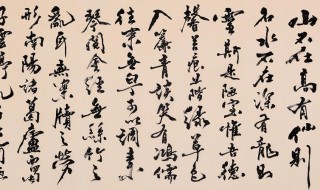 山不在高有仙則
名水不在深有龍則
靈斯是陋室惟吾德
馨苔痕上階綠草色
入簾青談笑有鴻儒
往來無白丁可以調素
琴閱金經無絲竹之
亂耳無案牘之勞
形南陽諸葛廬西蜀
子雲亭